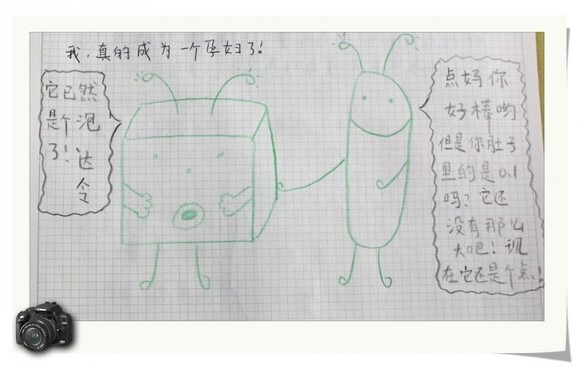 我，真的成为一个孕妇了！
它已然
是个泡
了！达
令
点妈你
好棒哟
但是你肚子
里的是0.1
吗？它还
没有那么
大吧！现
在它还是个点！